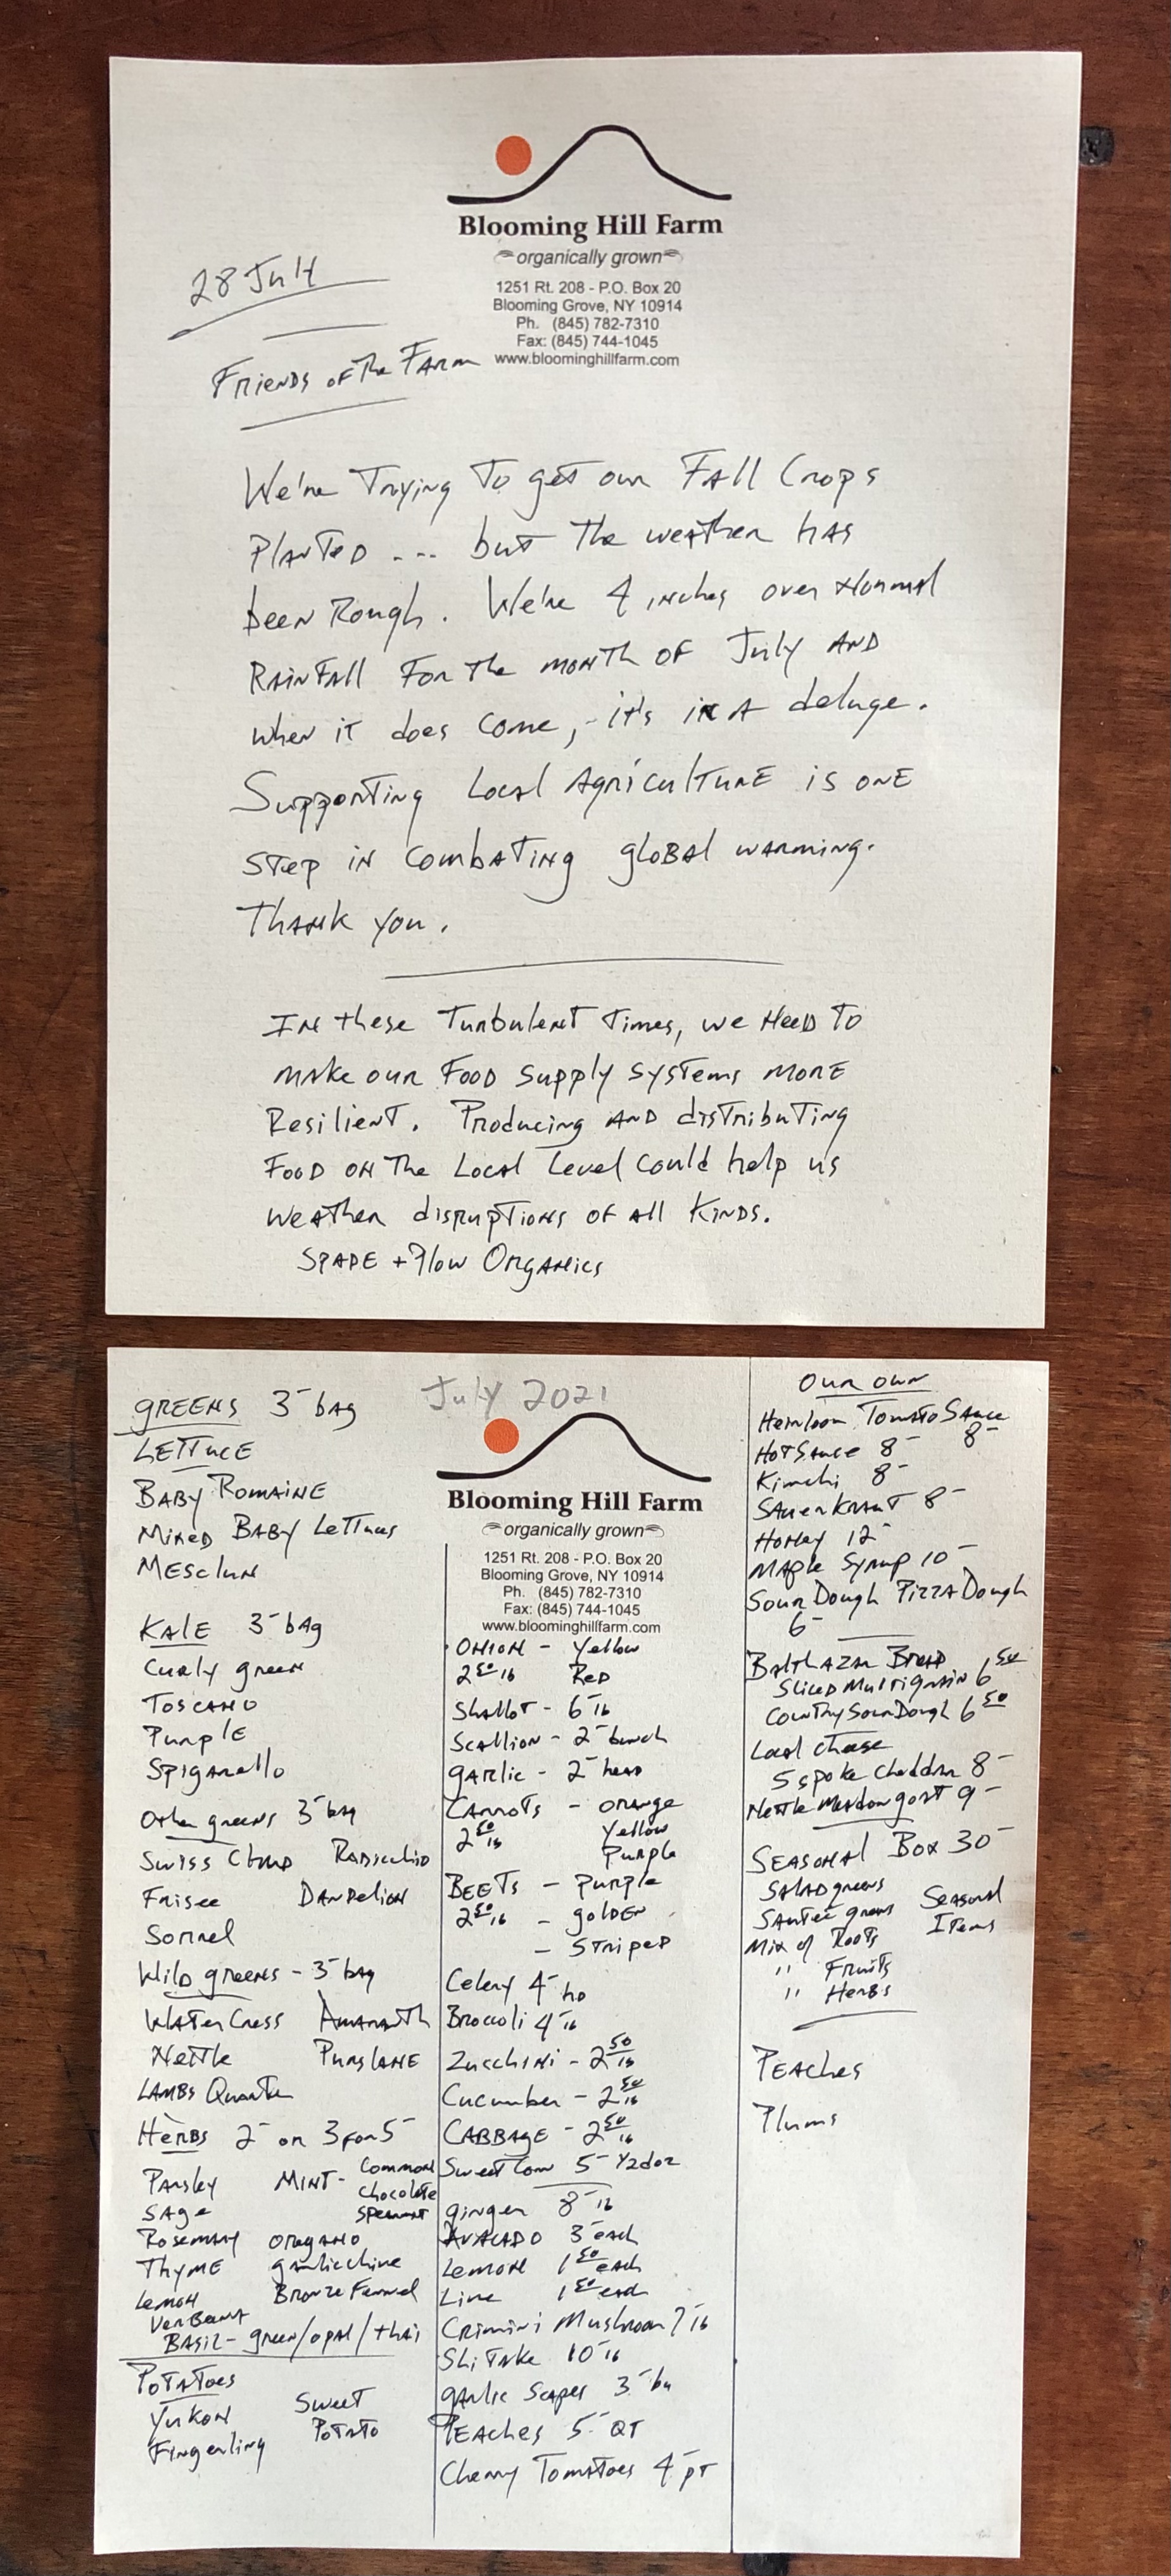 Blooming Hill Farm
organically grown
1251 Rt. 208 - P.O. Box 20
Blooming Grove, NY 10914
Ph. (845) 782-7310
Fax: (845) 744-1045
www.bloominghillfarm.com
28 July
Friends of the Farm
We're Trying To get our Fall Crops
Planted ... but the weather has
been Rough. We're 4 inches over Normal
Rainfall For the month of July And
when it does come, - it's in A deluge.
Supporting Local Agriculture is one
step in combating global warming.
Thank you.
In these Turbulent Times, we Need To
make our Food supply systems more
Resilient. Producing And distributing
Food on the Local Level could help us
weather disruptions of all Kinds.
Spade + Plow Organics
July 2021
Greens 3- bag
Lettuce
Baby Romaine
Mixed Baby Lettuces
Mesclun
Kale 3- bag
Curly green
Toscano
Purple
Spigarello
Other greens 3- bag
Swiss Chard Radicchio
Frisee Dandelion
Sorrel
Wild greens - 3- bag
Water Cress Amaranth
Nettle Purslane
Lambs Quarter
Herbs 2- or 3 for 5-
Parsley Mint - Common
Chocolate
Sage Spearmint
Rosemary Oregano
Thyme garlic chive
Lemon Bronze Fennel
Verbena
Basil - green/opal/thai
Potatoes
Yukon Sweet
Fingerling Potato
Blooming Hill Farm
organically grown
1251 Rt. 208 - P.O. Box 20
Blooming Grove, NY 10914
Ph. (845) 782-7310
Fax: (845) 744-1045
www.bloominghillfarm.com
Onion - Yellow
2 50 lb Red
Shallot - 6- lb
Scallion - 2- bunch
garlic - 2- head
Carrots - orange
2 50 lb Yellow
Purple
Beets - Purple
2 50 lb - golden
- Striped
Celery 4- hd
Broccoli 4- lb
Zucchini - 2 50 lb
Cucumber - 2 50 lb
Cabbage - 2 50 lb
Sweet Corn 5- 1/2 doz
ginger 8- lb
Avacado 3- each
Lemon 1 50 each
Lime 1 50 each
Crimini Mushroom 7- lb
Shitake 10- lb
garlic Scapes 3- bu
Peaches 5- QT
Cherry Tomatoes 4- pt
Our own
Heirloom Tomato Sauce
8-
Hot Sauce 8-
Kimchi 8-
Sauerkraut 8-
Honey 12-
Maple Syrup 10-
Sour Dough Pizza Dough
6-
Balthazar Bread
Sliced Multigrain 6 50
Country Sour Dough 6 50
Local cheese
5 spoke cheddar 8-
Nettle Meadow goat 9-
Seasonal Box 30-
Salad greens
Sautee greens Seasonal
Mix of Roots Items
" Fruits
" Herbs
Peaches
Plums